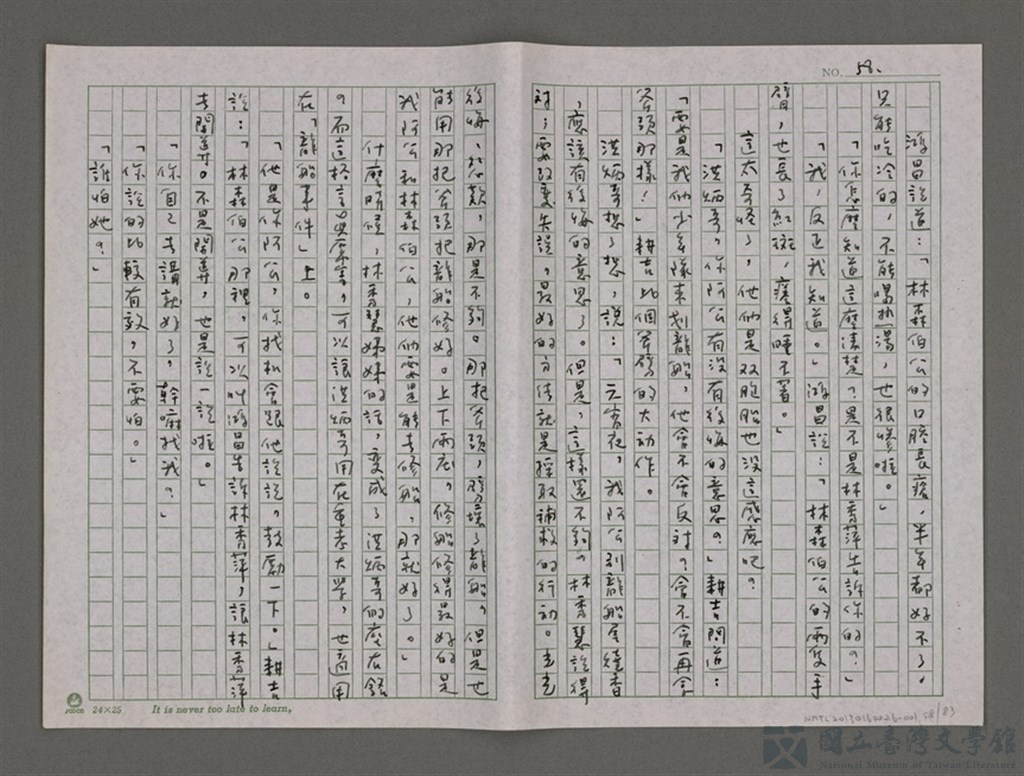 NO. 58.
鴻昌說道：「林森伯公的口腔長瘡，半年都好不了。
只能吃冷的，不能喝熱湯，也很慘啦。」
「你怎麼知道這麼清楚？是不是林秀萍告訴你的？」
「我，反正我知道。」鴻昌說：「林森伯公的兩隻手
臂，也長了紅斑，癢得睡不著。」
這太奇怪了，他們是双胞胎也沒這感應吧？
「洪炳哥，你阿公有沒有後悔的意思？」耕吉問道：
「要是我們少年隊來划龍船，他會不會反對？會不會再拿
斧頭那樣！」耕吉比個斧劈的大動作。
洪炳哥想了想，說：「元宵夜，我阿公到龍船厝燒香
，應該有後悔的意思了。但是，這樣還不夠。林秀慧說得
對，要改變失誤，最好的方法就是採取補救的行動。光光
後悔、抱歉，那是不夠。那把斧頭，劈壞了龍船，但是也
能用那把斧頭把龍船修好。上下兩庄，修船修得最好的是
我阿公和林森伯公，他們要是能去修船，那就好了。」
什麼時候，林秀慧姊妹的話，變成了洪炳哥的座右銘
。而這格言兼厚害，可以讓洪炳哥用在重考大學，也適用
在「龍船事件」上。
「他是你阿公，你找機會跟他說說，鼓勵一下。」耕吉
說：「林森伯公那裡，可以叫鴻昌告訴林秀萍，讓林秀萍
去開導。不是開導，也是說一說啦。」
「你自己去講就好了，幹嘛找我？」
「你說的比較有效，不要怕。」
「誰怕她？」
24×25
It is never too late to learn,
NMTL20130160026-001 58/83
國立臺灣文學館
National Museum of Taiwan Literature